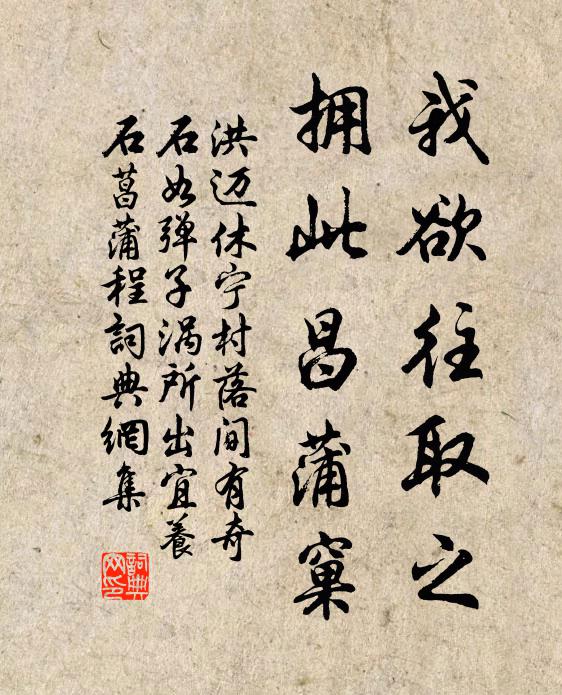 我欲往取之
拥此昌蒲窠
洪迈休宁村落间有奇
石如弹子涡所出宜养
石菖蒲程詞典網集
詞典
网印